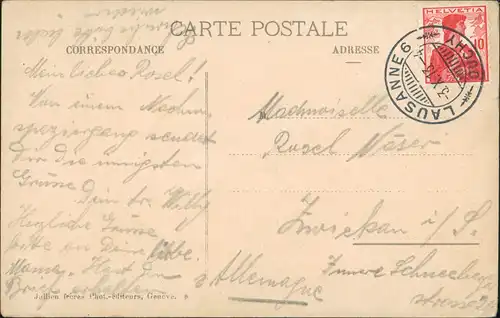 CARTE POSTALE
CORRESPONDANCE
ADRESSE
HELVETIA
10
LAUSANNE 6
OUCHY
Mein liebes Rosel!
Von einem Nachm.
spaziergang sendet
Dir die innigsten
Grüsse Dein tr. Willy
Herzliche Grüsse
bitte an Deine liebe
Mama. Hast Du
Brief erhalten
Mademoiselle
Rosel Näser
Zwickau i/S.
Innere Schneeberger
strasse
Allemagne
Jullien frères Phot.-Editeurs, Genève.